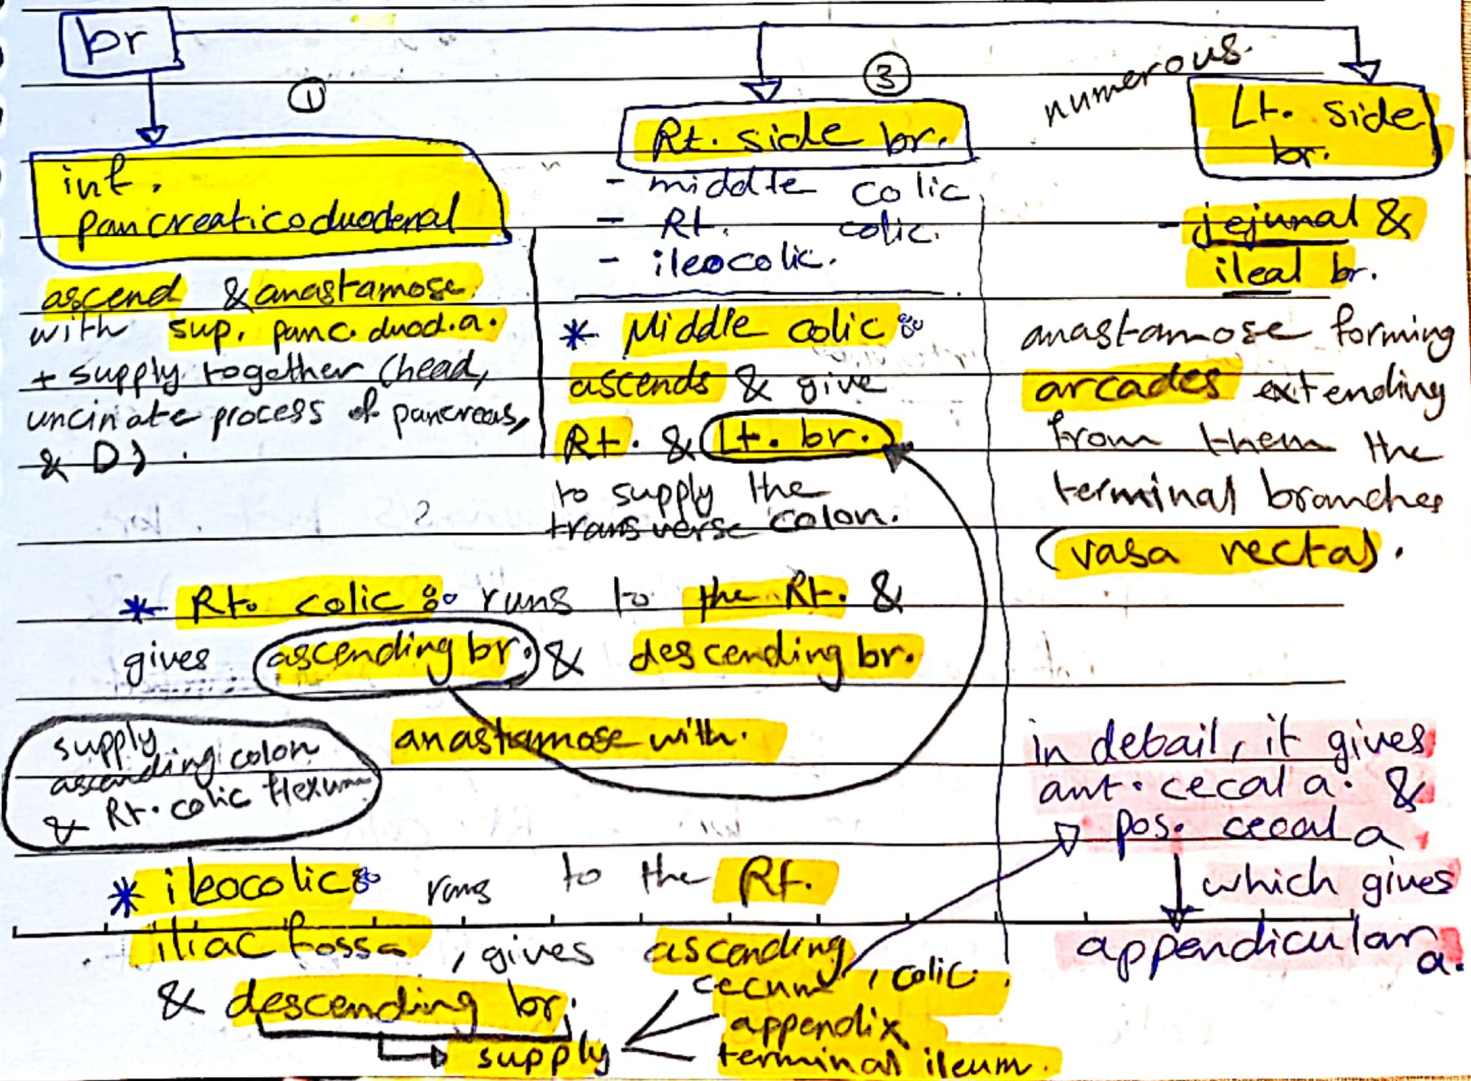 br
①
inf.
pancreaticoduodenal
ascend & anastamose
with sup. panc. duod. a.
+ supply together (head,
uncinate process of pancreas,
& D).
③
Rt. side br.
- middle colic
- Rt. colic.
- ileocolic.
* Middle colic:
ascends & give
Rt. & Lt. br.
to supply the
transverse colon.
* Rt. colic: runs to the Rt. &
gives ascending br. & descending br.
anastamose with.
supply
ascending colon
& Rt. colic flexure
* ileocolic: runs to the Rt.
iliac fossa, gives ascending
& descending br.
supply
cecum, colic.
appendix
terminal ileum.
numerous.
Lt. side
br.
- jejunal &
ileal br.
anastamose forming
arcades extending
from them the
terminal branches
(vasa recta).
in detail, it gives
ant. cecal a. &
pos. cecal a
which gives
appendicular
a.